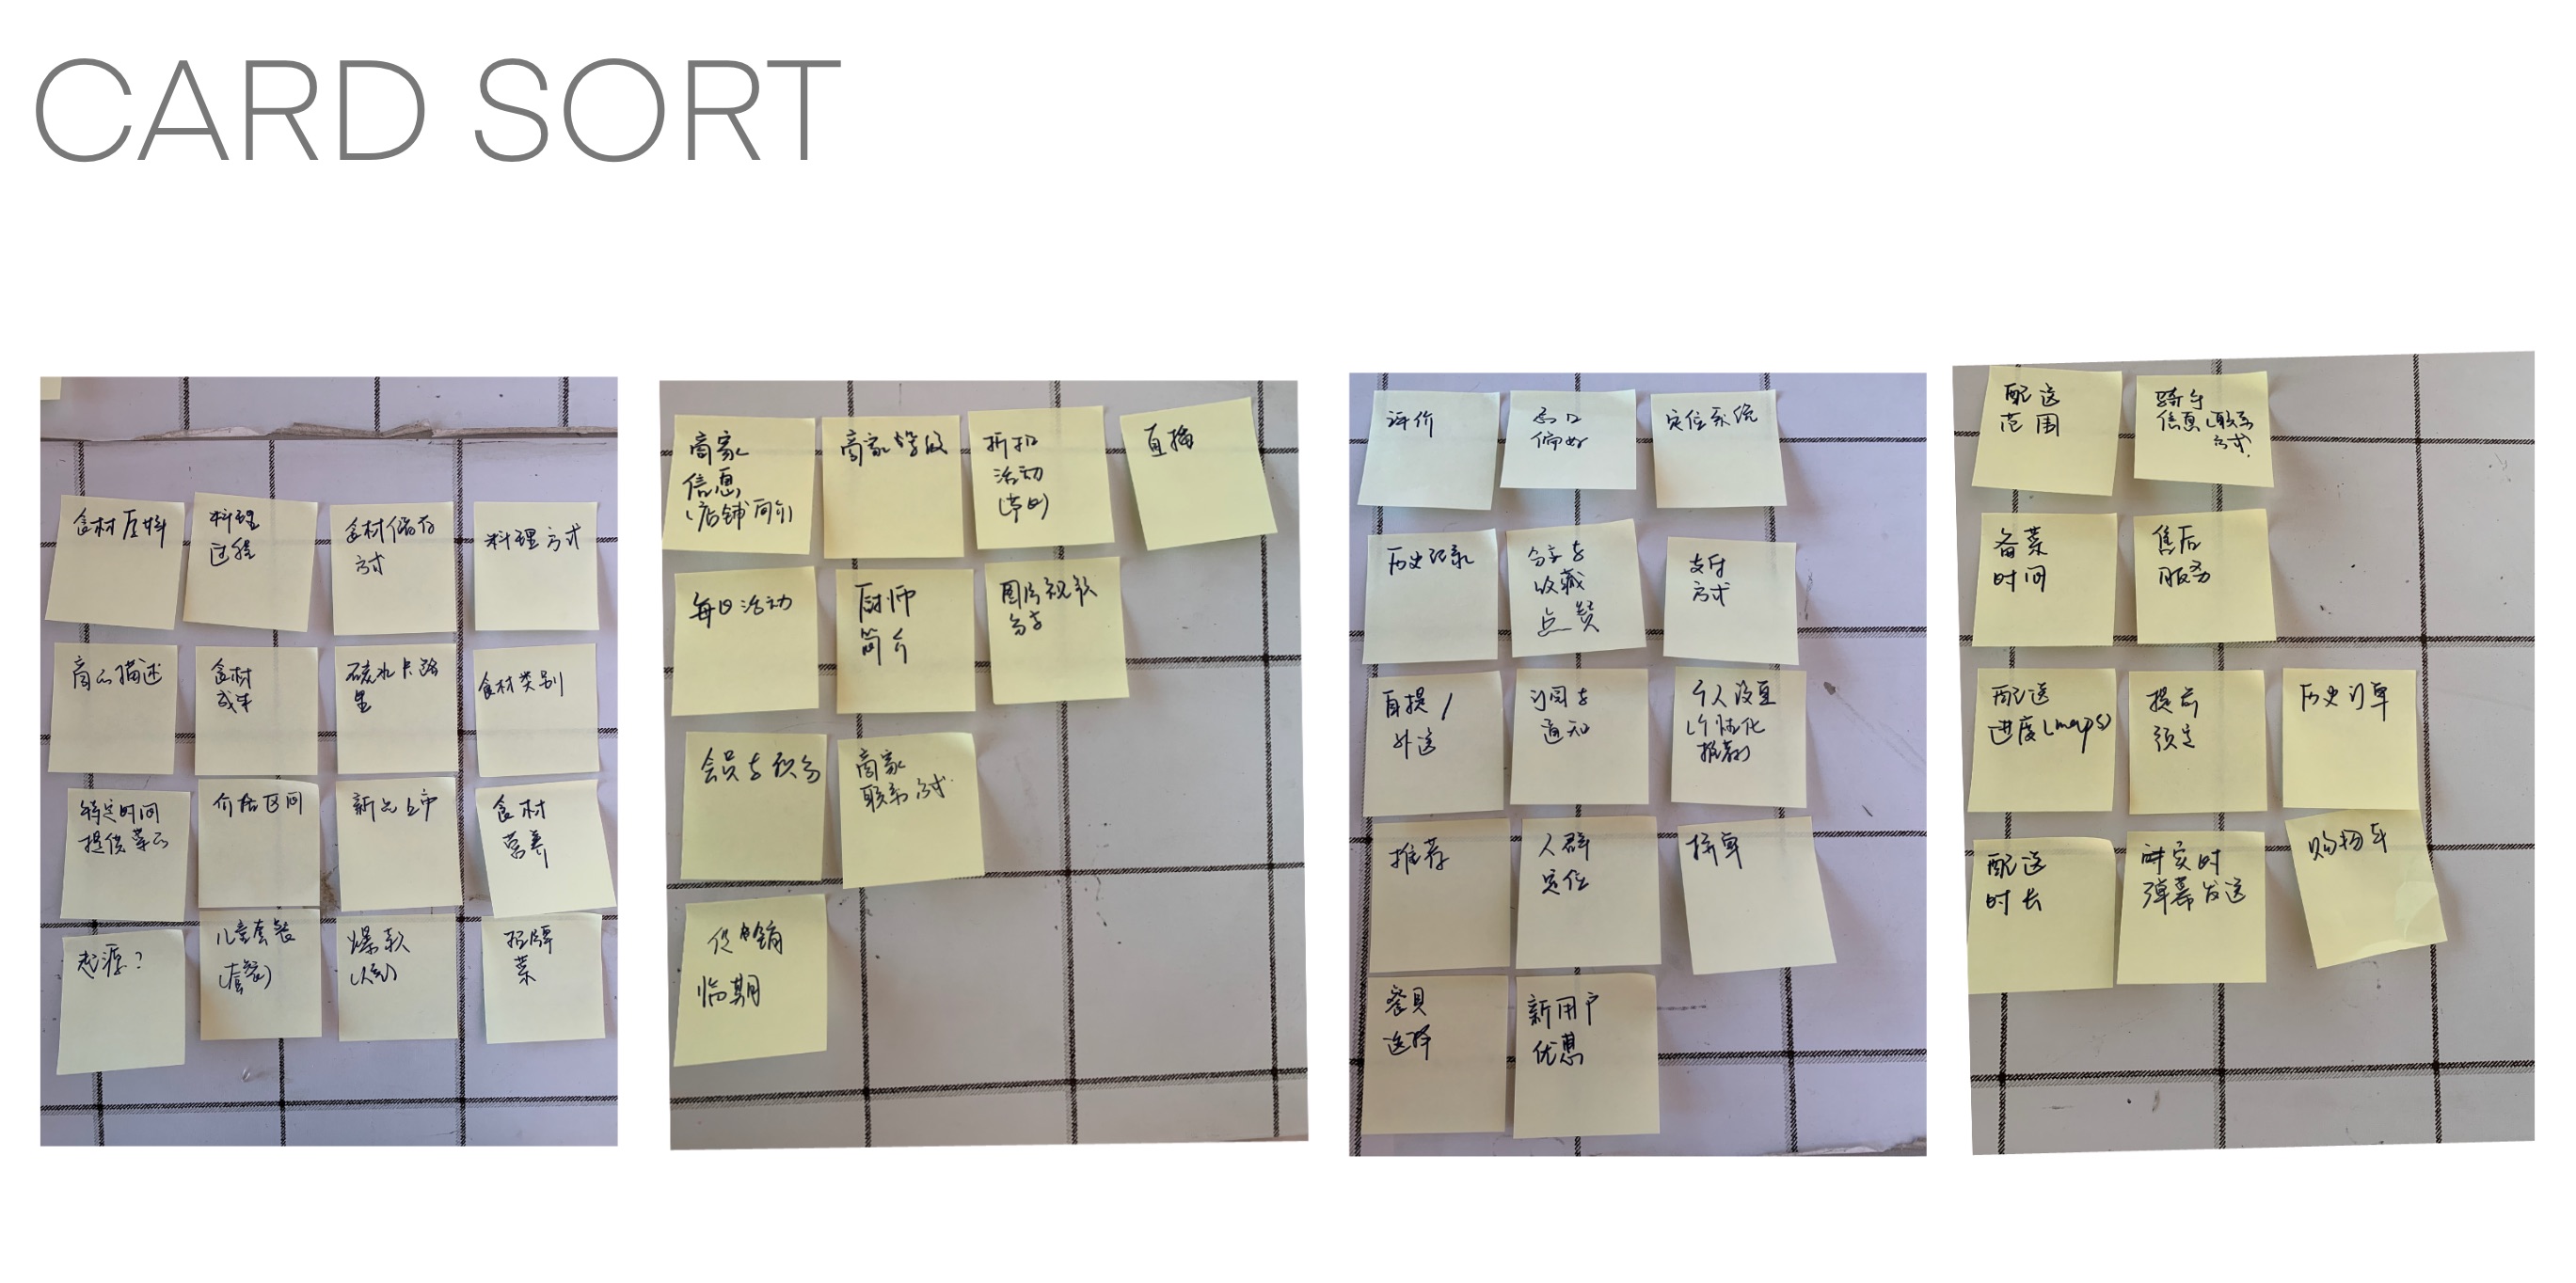 CARD SORT
食材原料
料理
过程
食材储存
方式
料理方式
商品描述
食材
成本
碳水卡路
里
食材类别
特定时间
提供菜品
价格区间
新品上市
食材
营养
起源?
儿童套餐
(套餐)
爆款
招牌
菜
商家
信息
(店铺简介)
商家等级
折扣
活动
(节日)
直播
每日活动
厨师
简介
图片视频
分享
会员与积分
商家
联系方式
促销
临期
评价
偏好
定位系统
历史记录
分享与
收藏
点赞
支付
方式
自提/
外送
订阅与
通知
个人设置
(个性化
推荐)
推荐
人群
定位
拼单
餐具
选择
新用户
优惠
配送
范围
骑手
信息(联系
方式)
备菜
时间
售后
服务
配送
进度(maps)
提前
预定
历史订单
配送
时长
实时
弹幕发送
购物车